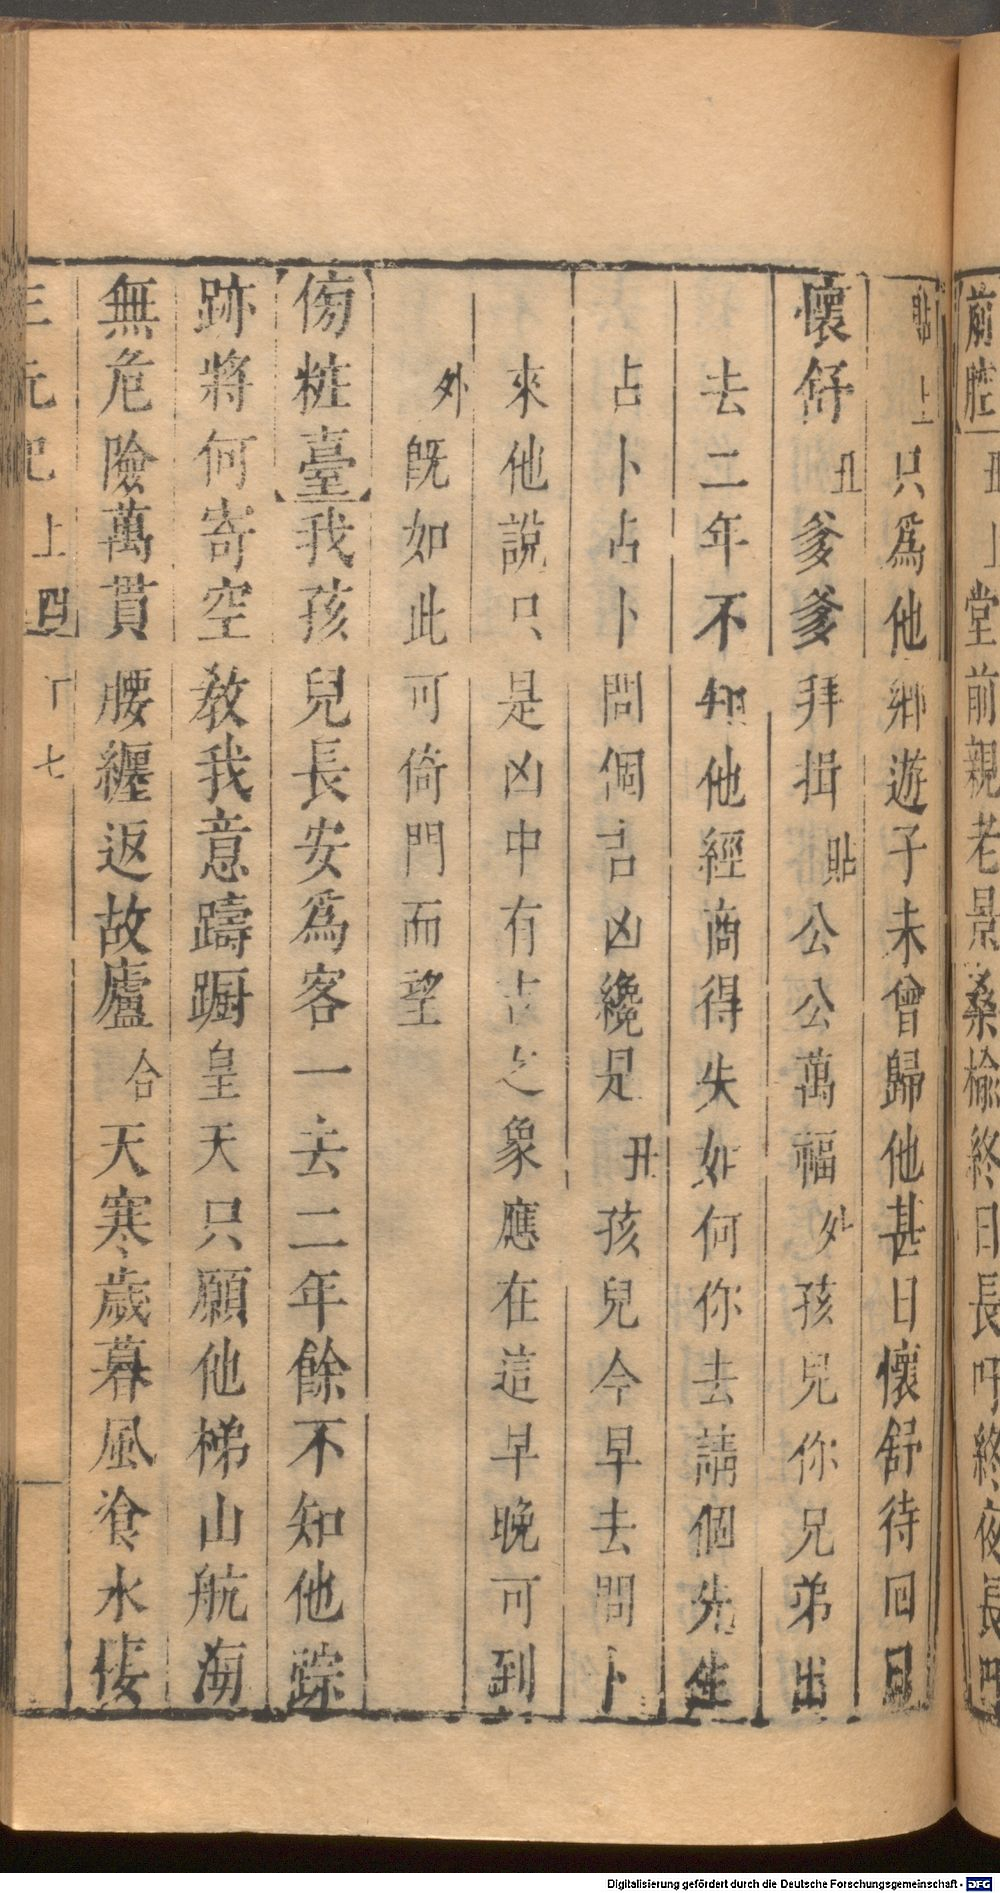 前腔 丑 上 堂前親老景桑榆終日長吁終夜長吁
貼上 只爲他鄉遊子未曾歸他甚日懷舒待回日
懷舒 丑 爹爹拜揖 貼 公公萬福 外 孩兒你兄弟出
去二年不知他經商得失如何你去請個先生
占卜占卜問個吉凶纔是 丑 孩兒今早去問卜
來他說只是凶中有吉之象應在這早晚可到
外 既如此可倚門而望
傍粧臺 我孩兒長安爲客一去二年餘不知他踪
跡將何寄空教我意躊蹰皇天只願他梯山航海
無危險萬貫腰纏返故廬 合 天寒歲暮風飡水
三元記 上 四 七
Digitalisierung gefördert durch die Deutsche Forschungsgemeinschaft - DFG